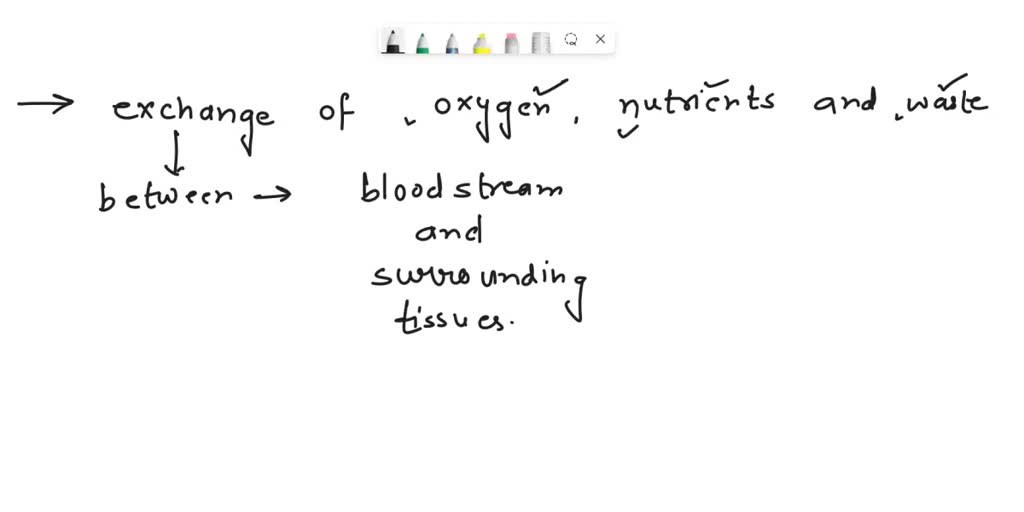 → exchange of oxygen, nutrients and waste
↓
between → bloodstream
and
surrounding
tissues.